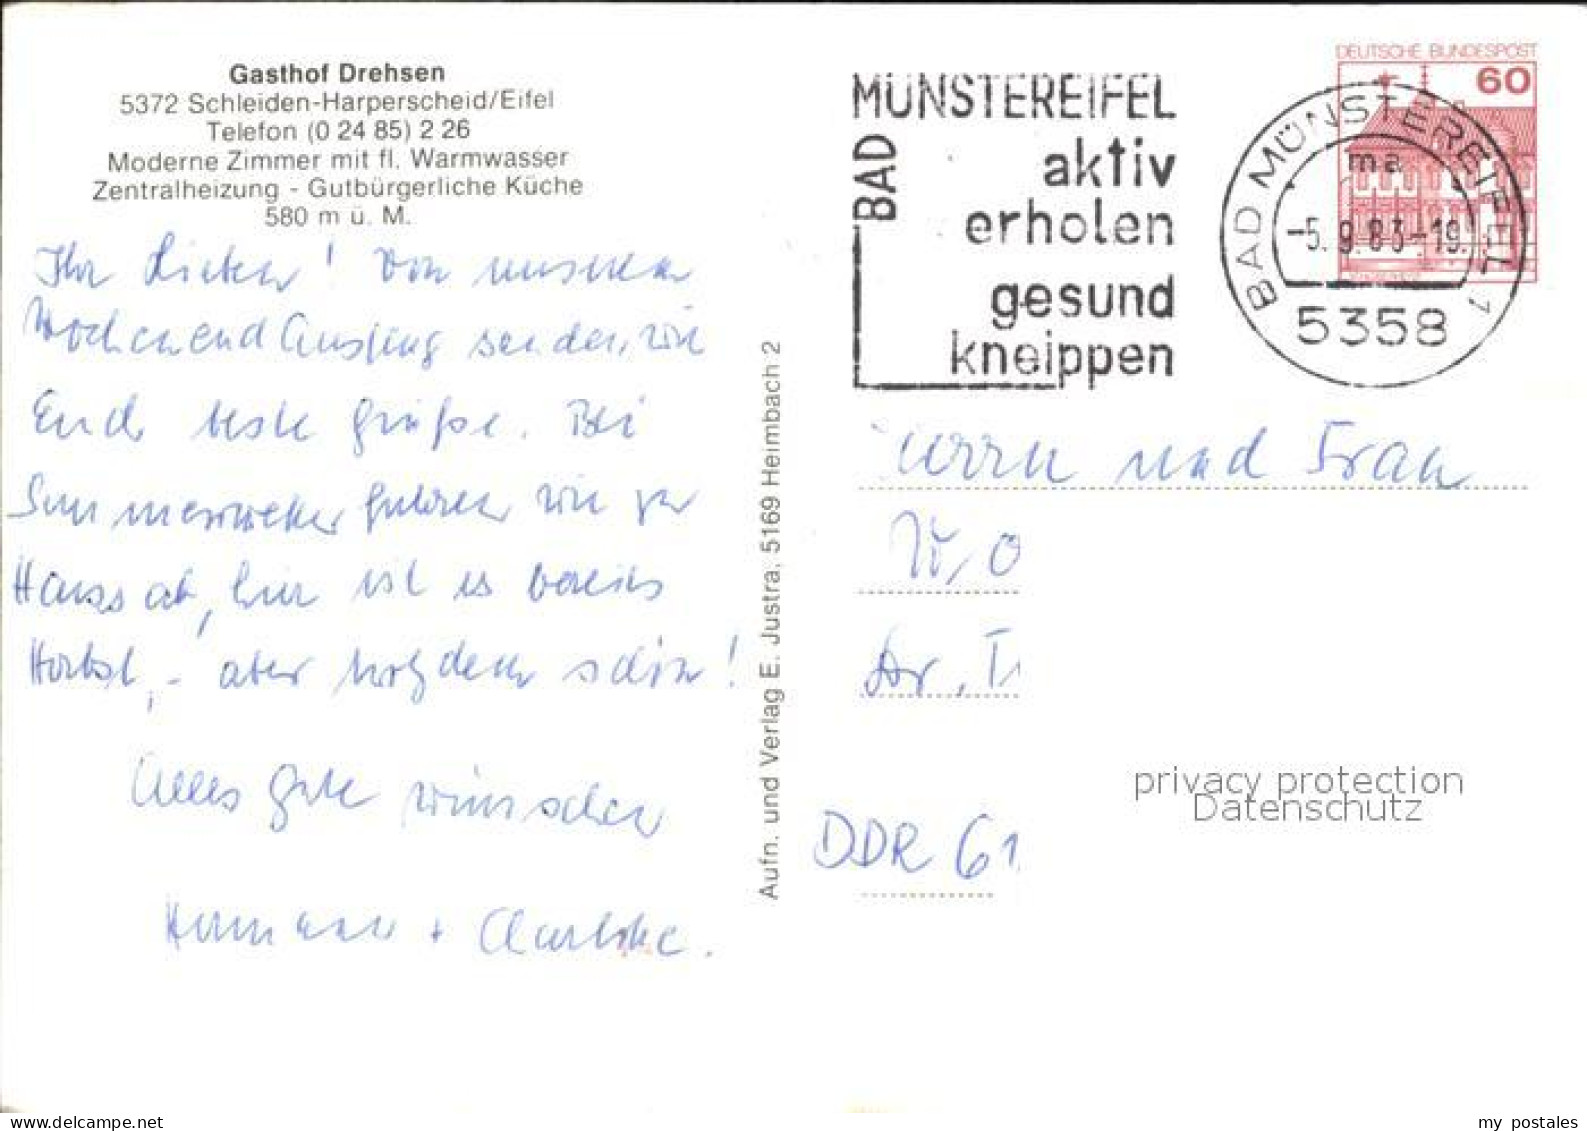 Gasthof Drehsen
5372 Schleiden-Harperscheid/Eifel
Telefon (0 24 85) 2 26
Moderne Zimmer mit fl. Warmwasser
Zentralheizung - Gutbürgerliche Küche
580 m ü. M.
Ihr Lieben! Von unserem
Wochenendausflug senden wir
Euch beste Grüße. Bei
Sommerwetter fuhren wir zu
Hause ab, hier ist es bereits
Herbst, - aber trotzdem schön!
Alles Gute wünschen
Hermann +
Aufn. und Verlag E. Justra, 5169 Heimbach 2
BAD MÜNSTEREIFEL
aktiv
erholen
gesund
kneippen
DEUTSCHE BUNDESPOST
60
BAD MÜNSTEREIFEL 1
ma
-5.9.83-19
5358
Herrn und Frau
W. O
Dr. T
DDR 61
privacy protection
Datenschutz
my postales